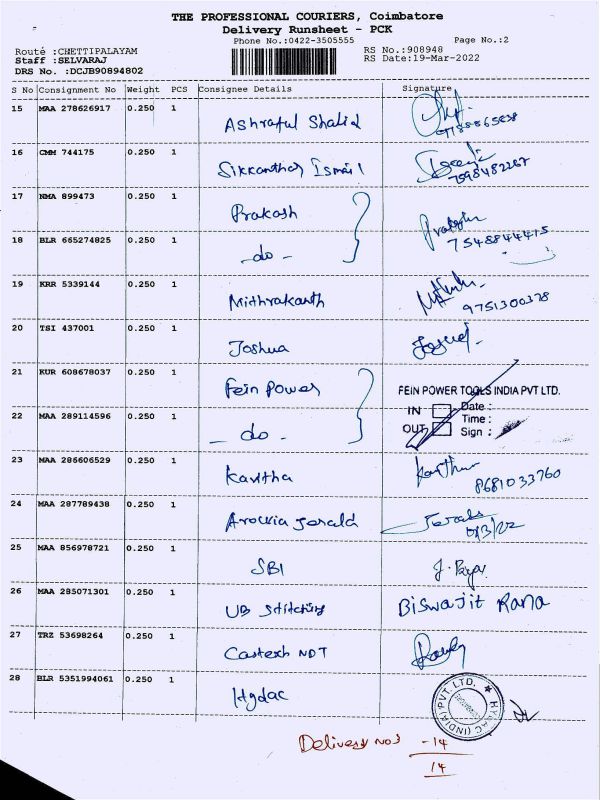 THE PROFESSIONAL COURIERS, Coimbatore
Delivery Runsheet - PCK
Phone No.:0422-3505555 Page No.:2
Route :CHETTIPALAYAM RS No.:908948
Staff :SELVARAJ RS Date:19-Mar-2022
DRS No. :DCJB90894802
S No Consignment No Weight PCS Consignee Details Signature
15 MAA 278626917 0.250 1 Ashraful Shalid
16 CMM 744175 0.250 1 Sikkanthar Ismail 7598482267
17 NMA 899473 0.250 1 Prakash
18 BLR 665274825 0.250 1 -do- 7548844415
19 KRR 5339144 0.250 1 Mithrakanth 9751300378
20 TSI 437001 0.250 1 Joshua
21 KUR 608678037 0.250 1 Fein Power FEIN POWER TOOLS INDIA PVT LTD.
IN Date :
Time :
22 MAA 289114596 0.250 1 - do - OUT Sign :
23 MAA 286606529 0.250 1 Kavitha 8681033760
24 MAA 287789438 0.250 1 Arockia Jerald
25 MAA 856978721 0.250 1 SBI
26 MAA 285071301 0.250 1 UB Stitching Biswajit Rana
27 TRZ 53698264 0.250 1 Castech NDT
28 BLR 5351994061 0.250 1 Hydac
HYDAC (INDIA) PVT. LTD.
Delivery No's -14
14